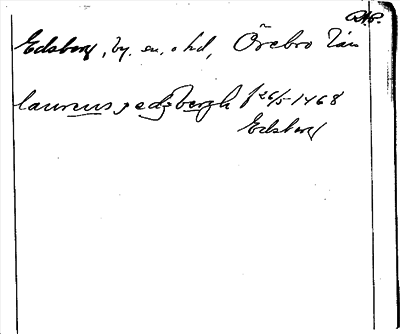 A.P.
Edsberg, by. sn. o hd, Örebro län
laurens j edzbergh f 26/5 1468
Edsberg